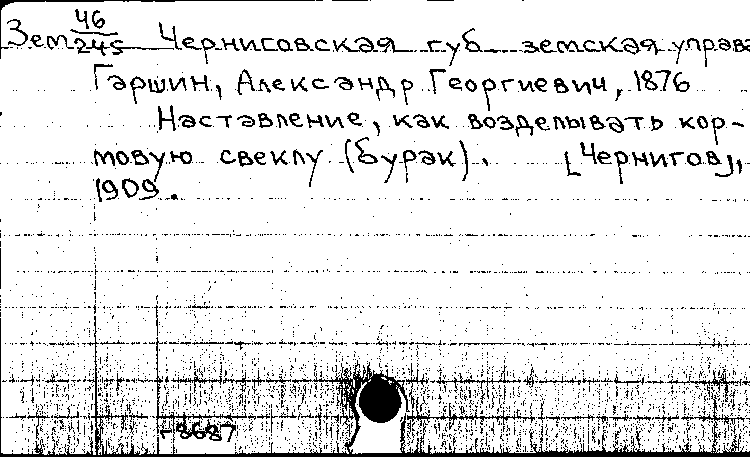 Зем 46/245 Черниговская губ. земская управа
Гаршин, Александр Георгиевич, 1876
Наставление, как возделывать кор-
мовую свеклу (бурак). [Чернигов],
1909.
-8687